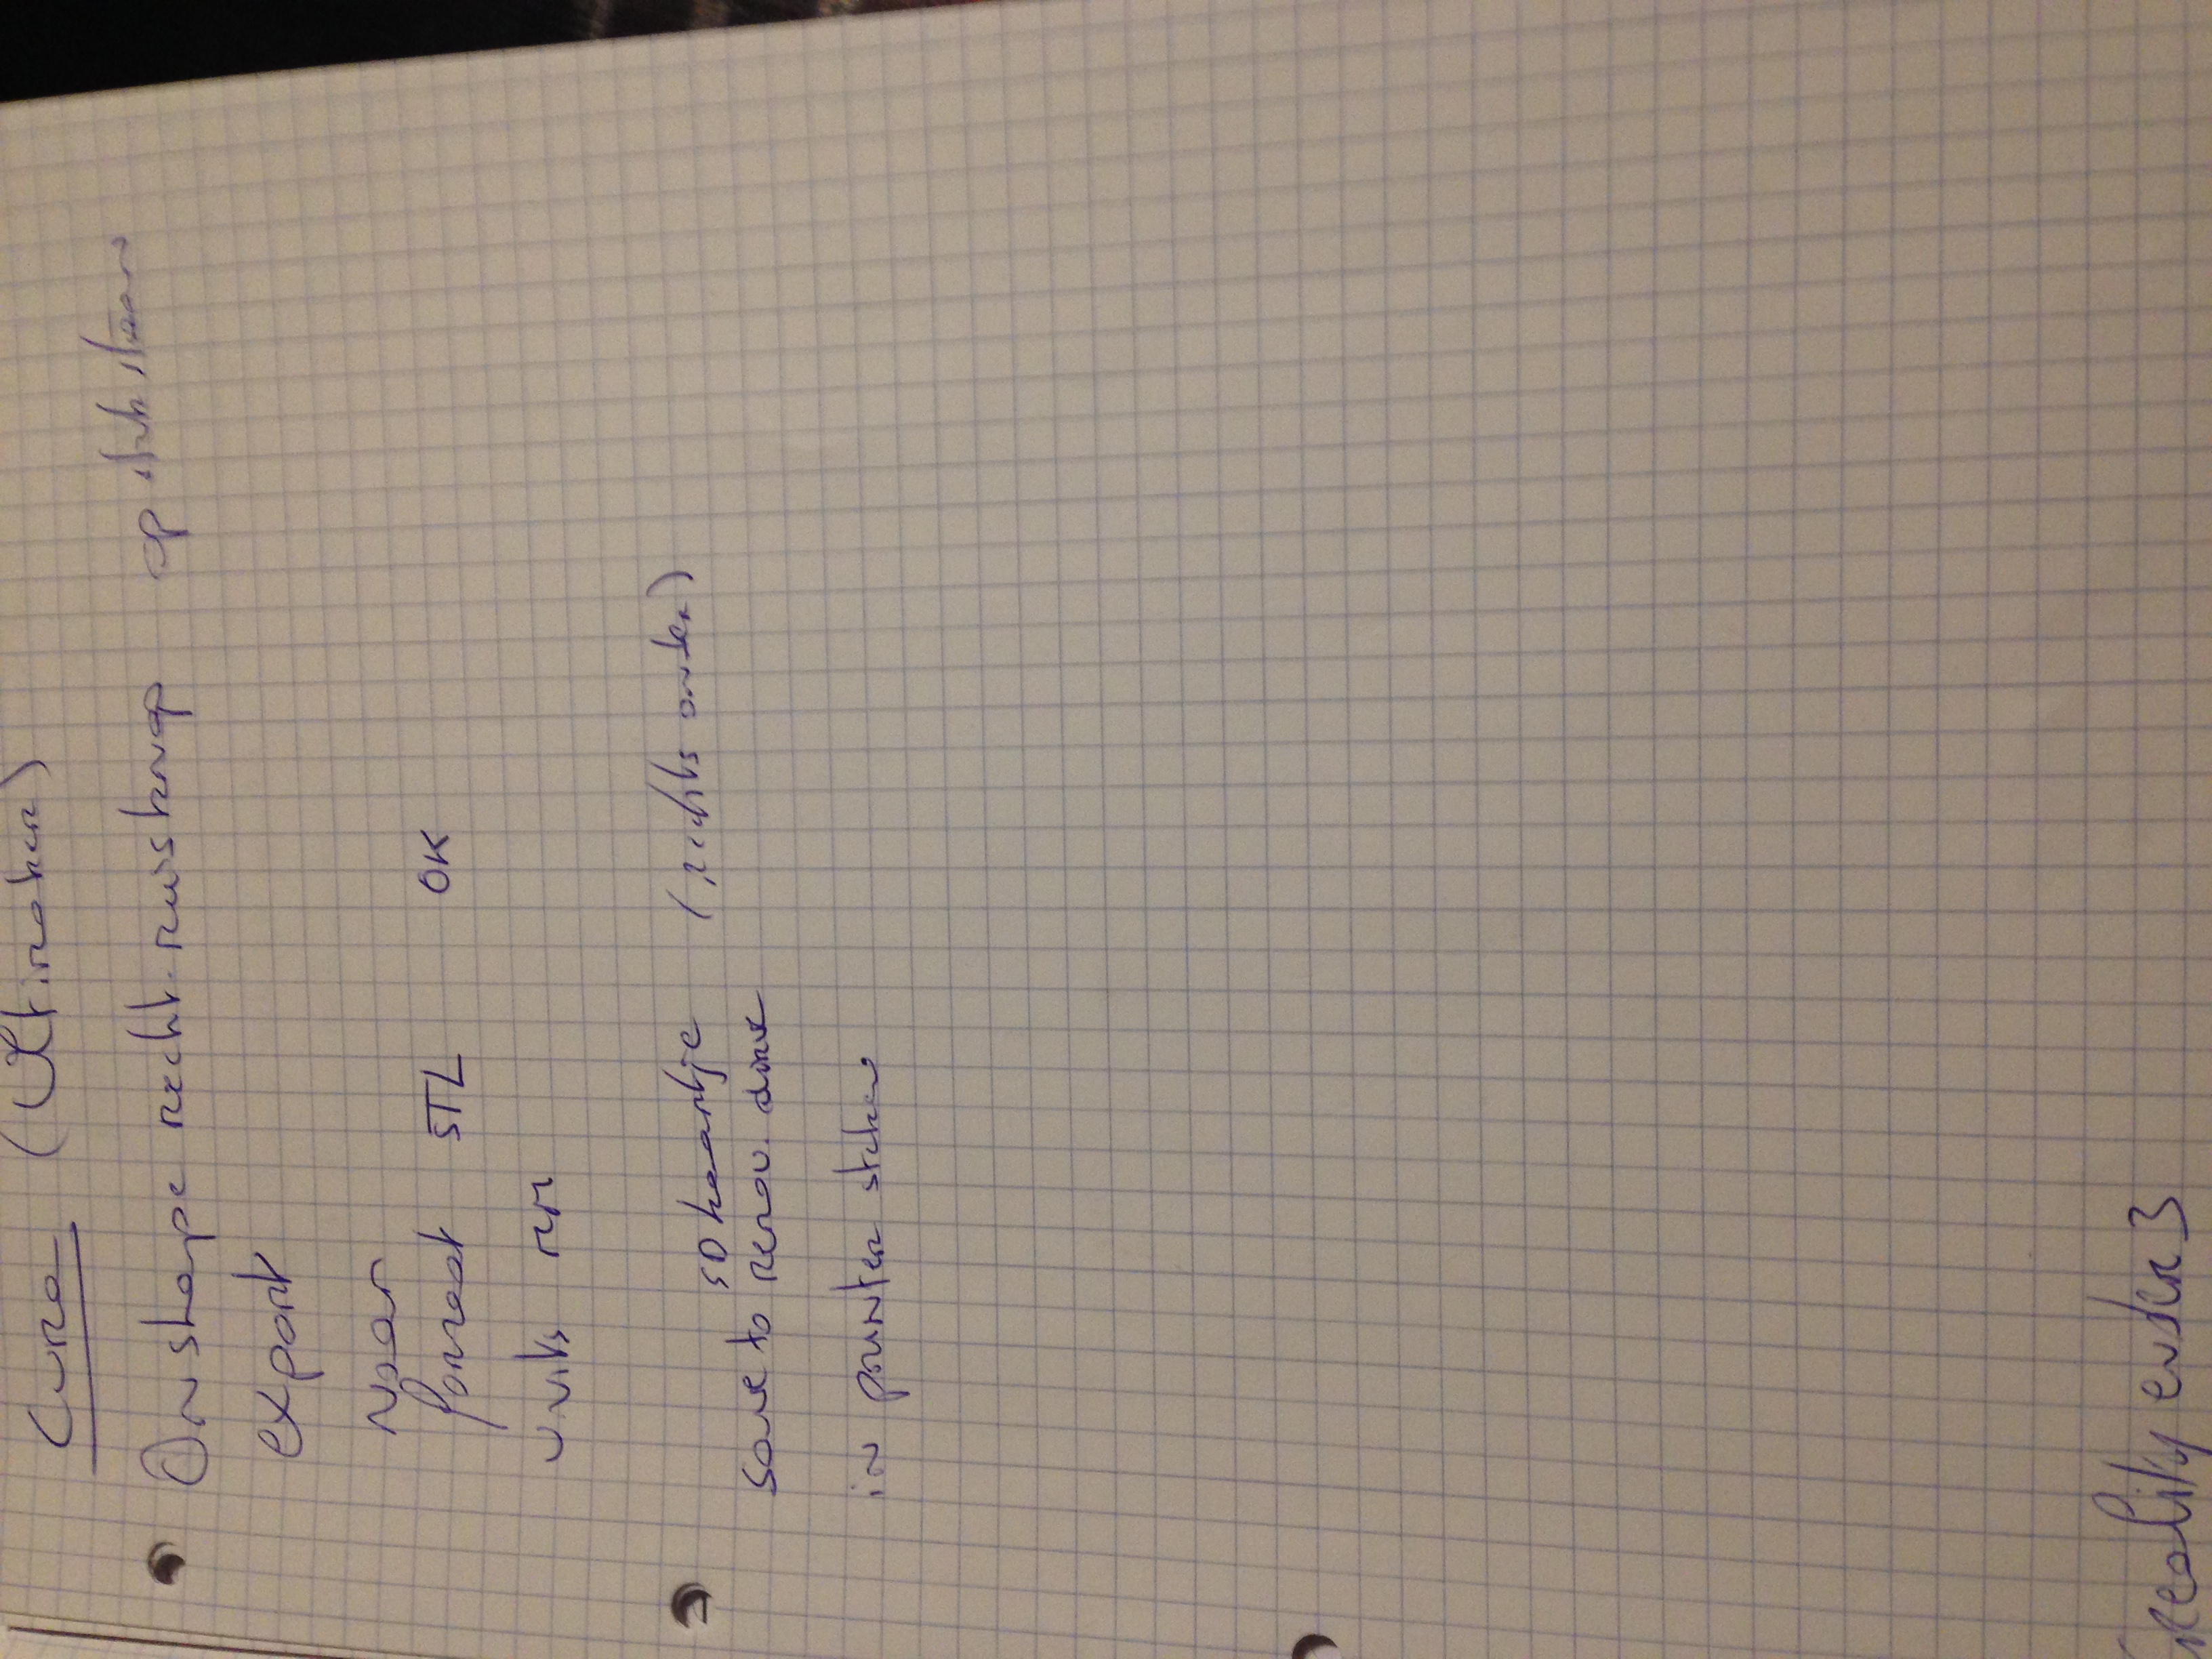 Cura (Ultimaker)
Onshape recht. muisknop op stuk staan
export
Naar
formaat STL OK
units mm
SD kaartje (rechts onder)
save to remov. drive
in printer steken
Creality ender 3